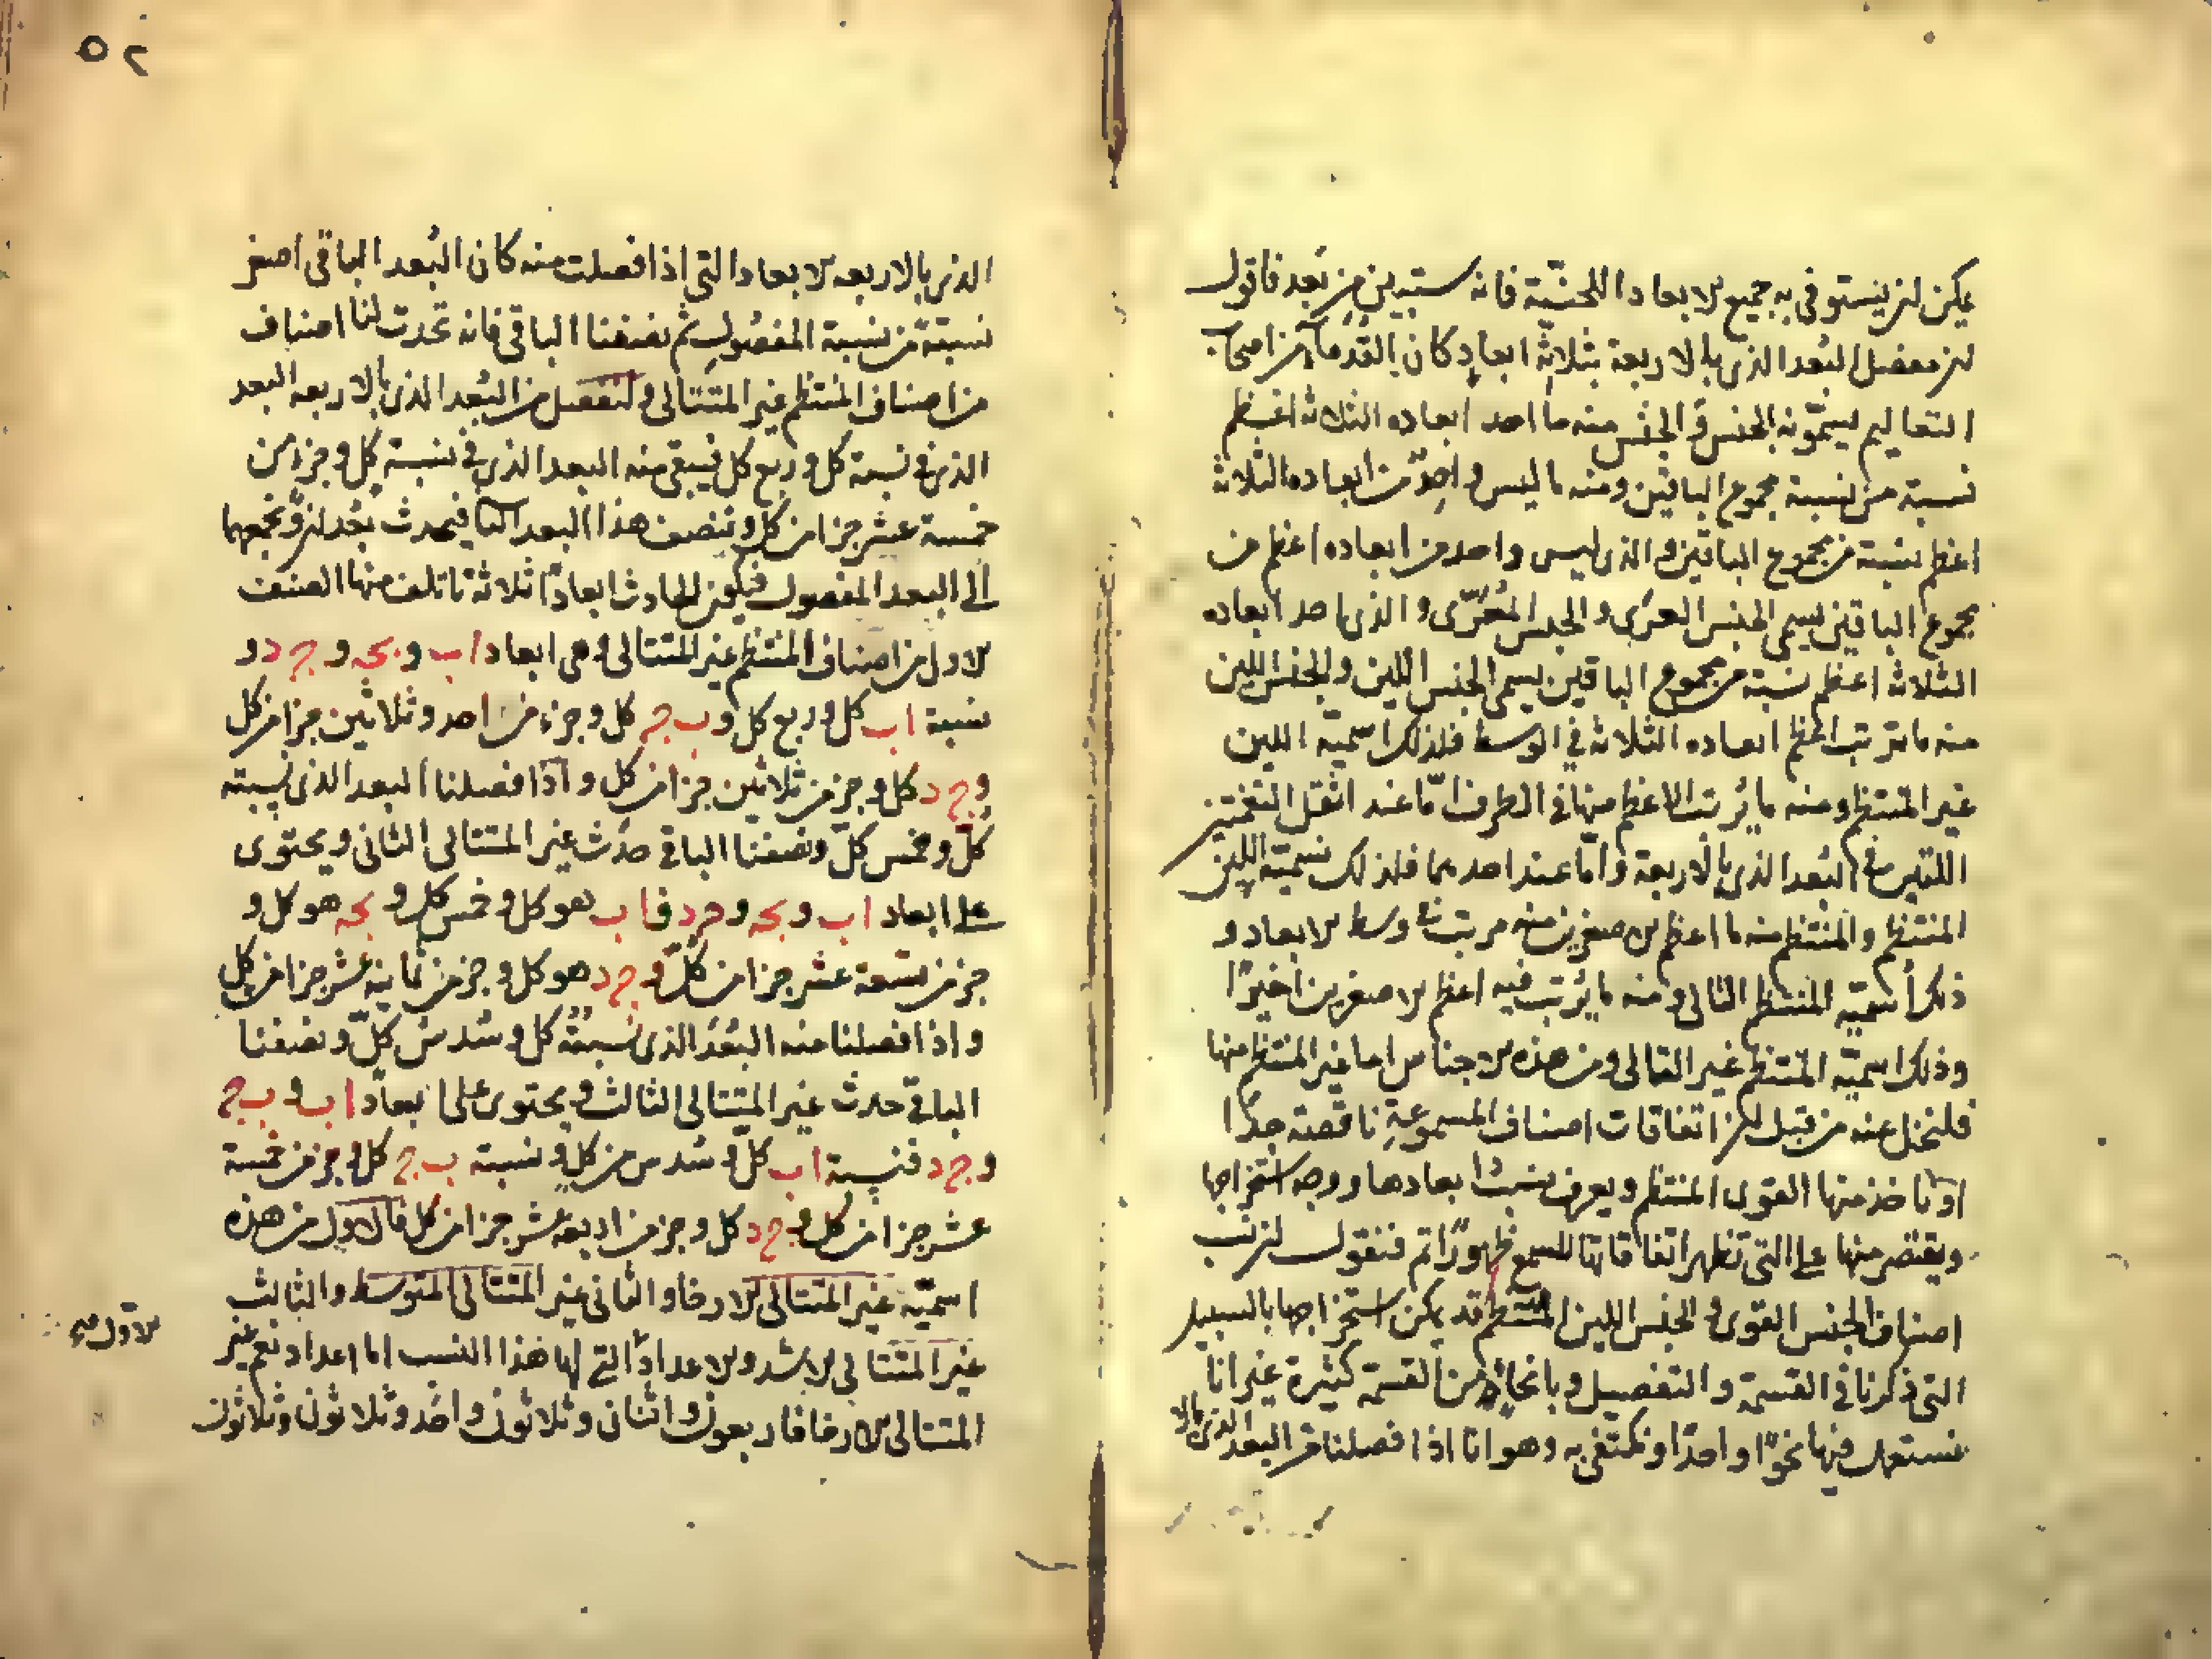 يمكن ان يستوفى به جميع الابعاد اللحنية فانه سيتبين من بعد فاقول
ان مفصل البعد الذى بالاربعة بثلاثة ابعاد كان القدماء من اصحاب
التعاليم يسمونه الجنس والجنس منه ما احد ابعاده الثلاثة اعظم
نسبة من نسبة مجموع الباقيين ومنه ما ليس واحد من ابعاده الثلاثة
اعظم نسبة من مجموع الباقيين والذى ليس واحد من ابعاده اعظم من
مجموع الباقيين يسمى الجنس القوى والجنس المقوى والذى احد ابعاده
الثلاثة اعظم نسبة من مجموع الباقيين يسمى الجنس اللين والجنس اللين
منه ما يترتب اعظم ابعاده الثلاثة فى الوسط فلذلك اسميه اللين
غير المنتظم ومنه ما يرتب الاعظم منها فى الطرف اما عند اثقل النغمتين
اللتين فى البعد الذى بالاربعة واما عند احدهما فلذلك نسميه اللين
المنتظم والمنتظم منه ما اعظم الاصغرين منه مرتب فى وسط الابعاد و
ذلك أسميه المنتظم التالى ومنه ما يرتب فيه اعظم الاصغرين اخيرًا
وذلك اسميه المنتظم غير التالى ومن هذه الاجناس اما غير المنتظم منها
فلنخل عنه من قبل ان اتفاقات اصناف المسموعة ناقصة جدًا
او ناخذ منها القوى المنتظم ويعرف نسب ابعادها ووجه استخراجها
ويقتصر منها على التى تظهر اتفاقاتها للسمع ظهورًا تم فنقول ان نسب
اصناف الجنس القوى والجنس اللين المنتظم قد يمكن استخراجها بالسبيل
التى ذكرنا فى القسمة والتفصيل وبانحاء من القسمة كثيرة غير انا
نستعمل فيها نحوًا واحدًا ونكتفى به وهو انا اذا فصلنا من البعد الذى بالا
٥٢
الذى بالاربعه الابعاد التى اذا فصلت منه كان البُعد الباقى اصغر
نسبة من نسبة المفصول ثم نصفنا الباقى فانه تحدث لنا اصناف
من اصناف المنتظم غير المتتالى ولنفصل من البُعد الذى بالاربعه البعد
الذى فى نسبة كل وربع كل فيبقى منه البعد الذى فى نسبة كل وجزء من
خمسة عشر جزا من كل وننصف هذا البعد الباقى فيحدث بُعدان ونجمعهما
الى البعد المفصول فيكون الحادث ابعادًا ثلاثة تاتلف منها الصنف
الاول من اصناف المنتظم غير المتتالى وهى ابعاد اب و بج و ج د و
نسبة اب كل وربع كل و ب ج كل وجزء من احد وثلاثين جزا من كل
و ج د كل وجز من ثلاثين جزا من كل واذا فصلنا البعد الذى نسبته
كل وخمس كل ونصفنا الباقى حدث غير المتتالى الثانى ويحتوى
على ابعاد اب و بج و ج د فاب هو كل وخمس كل و بج هو كل و
جز من تسعة عشر جزا من كل و ج د هو كل وجز من ثمانية عشر جزا من كل
واذا فصلنا منه البُعد الذى نسبته كل وسُدس كل ونصفنا
الباقى حدث غير المتتالى الثالث ويحتوى على ابعاد اب و ب ج
و ج د فنسبة اب كل وسُدس من كل ونسبة ب ج كل وجز من خمسة
عشر جزا من كل و ج د كل وجز من اربعة عشر جزا من كل فالاول من هذه
اسميه غير المتتالى الارخا والثانى غير المتتالى المتوسط والثالث
غير المتتالى الاشد والاعداد التى لها هذا النسب اما اعداد نغم غير
المتتالى الارخا فاربعون واثنان وثلاثون واحد وثلاثون وثلاثون
الاول